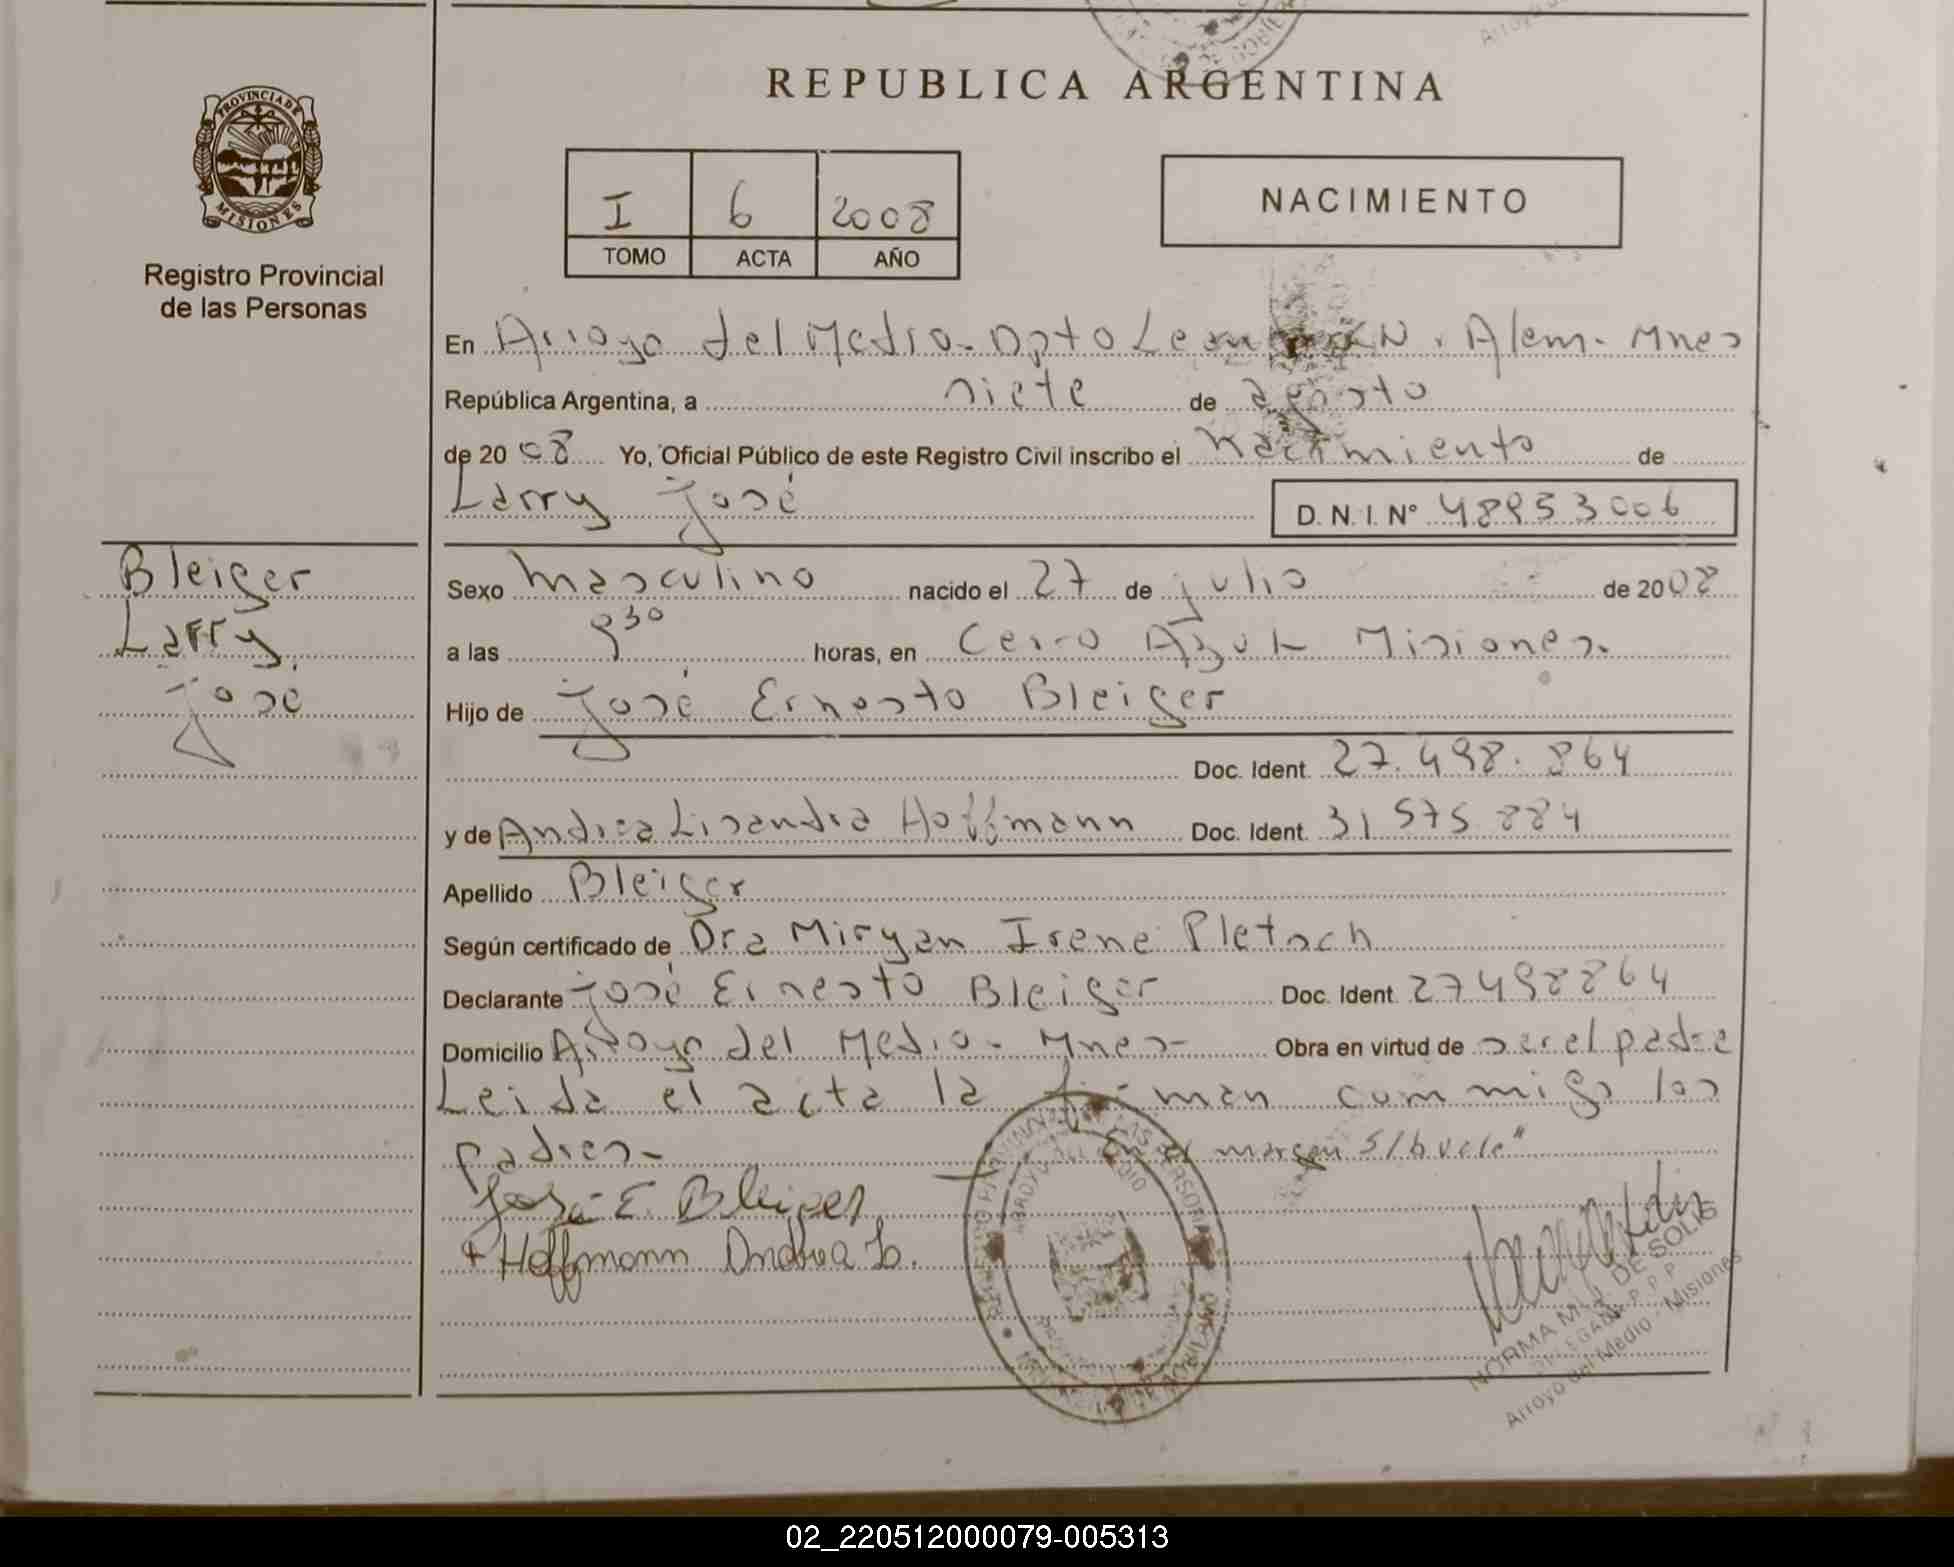 REPUBLICA ARGENTINA
PROVINCIA DE
MISIONES
Registro Provincial
de las Personas
I 6 2008
TOMO ACTA AÑO
NACIMIENTO
En Arroyo del Medio - Dpto Leandro N. Alem - Mnes
República Argentina, a siete de agosto
de 2008 Yo, Oficial Público de este Registro Civil inscribo el Nacimiento de
Larry José D. N. I. N° 48953006
Bleiger
Larry
José
Sexo Masculino nacido el 27 de julio de 2008
a las 9 30 horas, en Cerro Azul Misiones.
Hijo de José Ernesto Bleiger
Doc. Ident. 27.498.864
y de Andrea Lisandra Hoffmann Doc. Ident. 31 575 884
Apellido Bleiger
Según certificado de Dra Miryan Irene Pletsch
Declarante José Ernesto Bleiger Doc. Ident. 27498864
Domicilio Arroyo del Medio - Mnes - Obra en virtud de ser el padre
Leida el acta la firman commigo los
padres - margen
José E. Bleiger
+ Hoffmann Andrea L.
NORMA DE SOLIS
Arroyo del Medio - Misiones
02_220512000079-005313